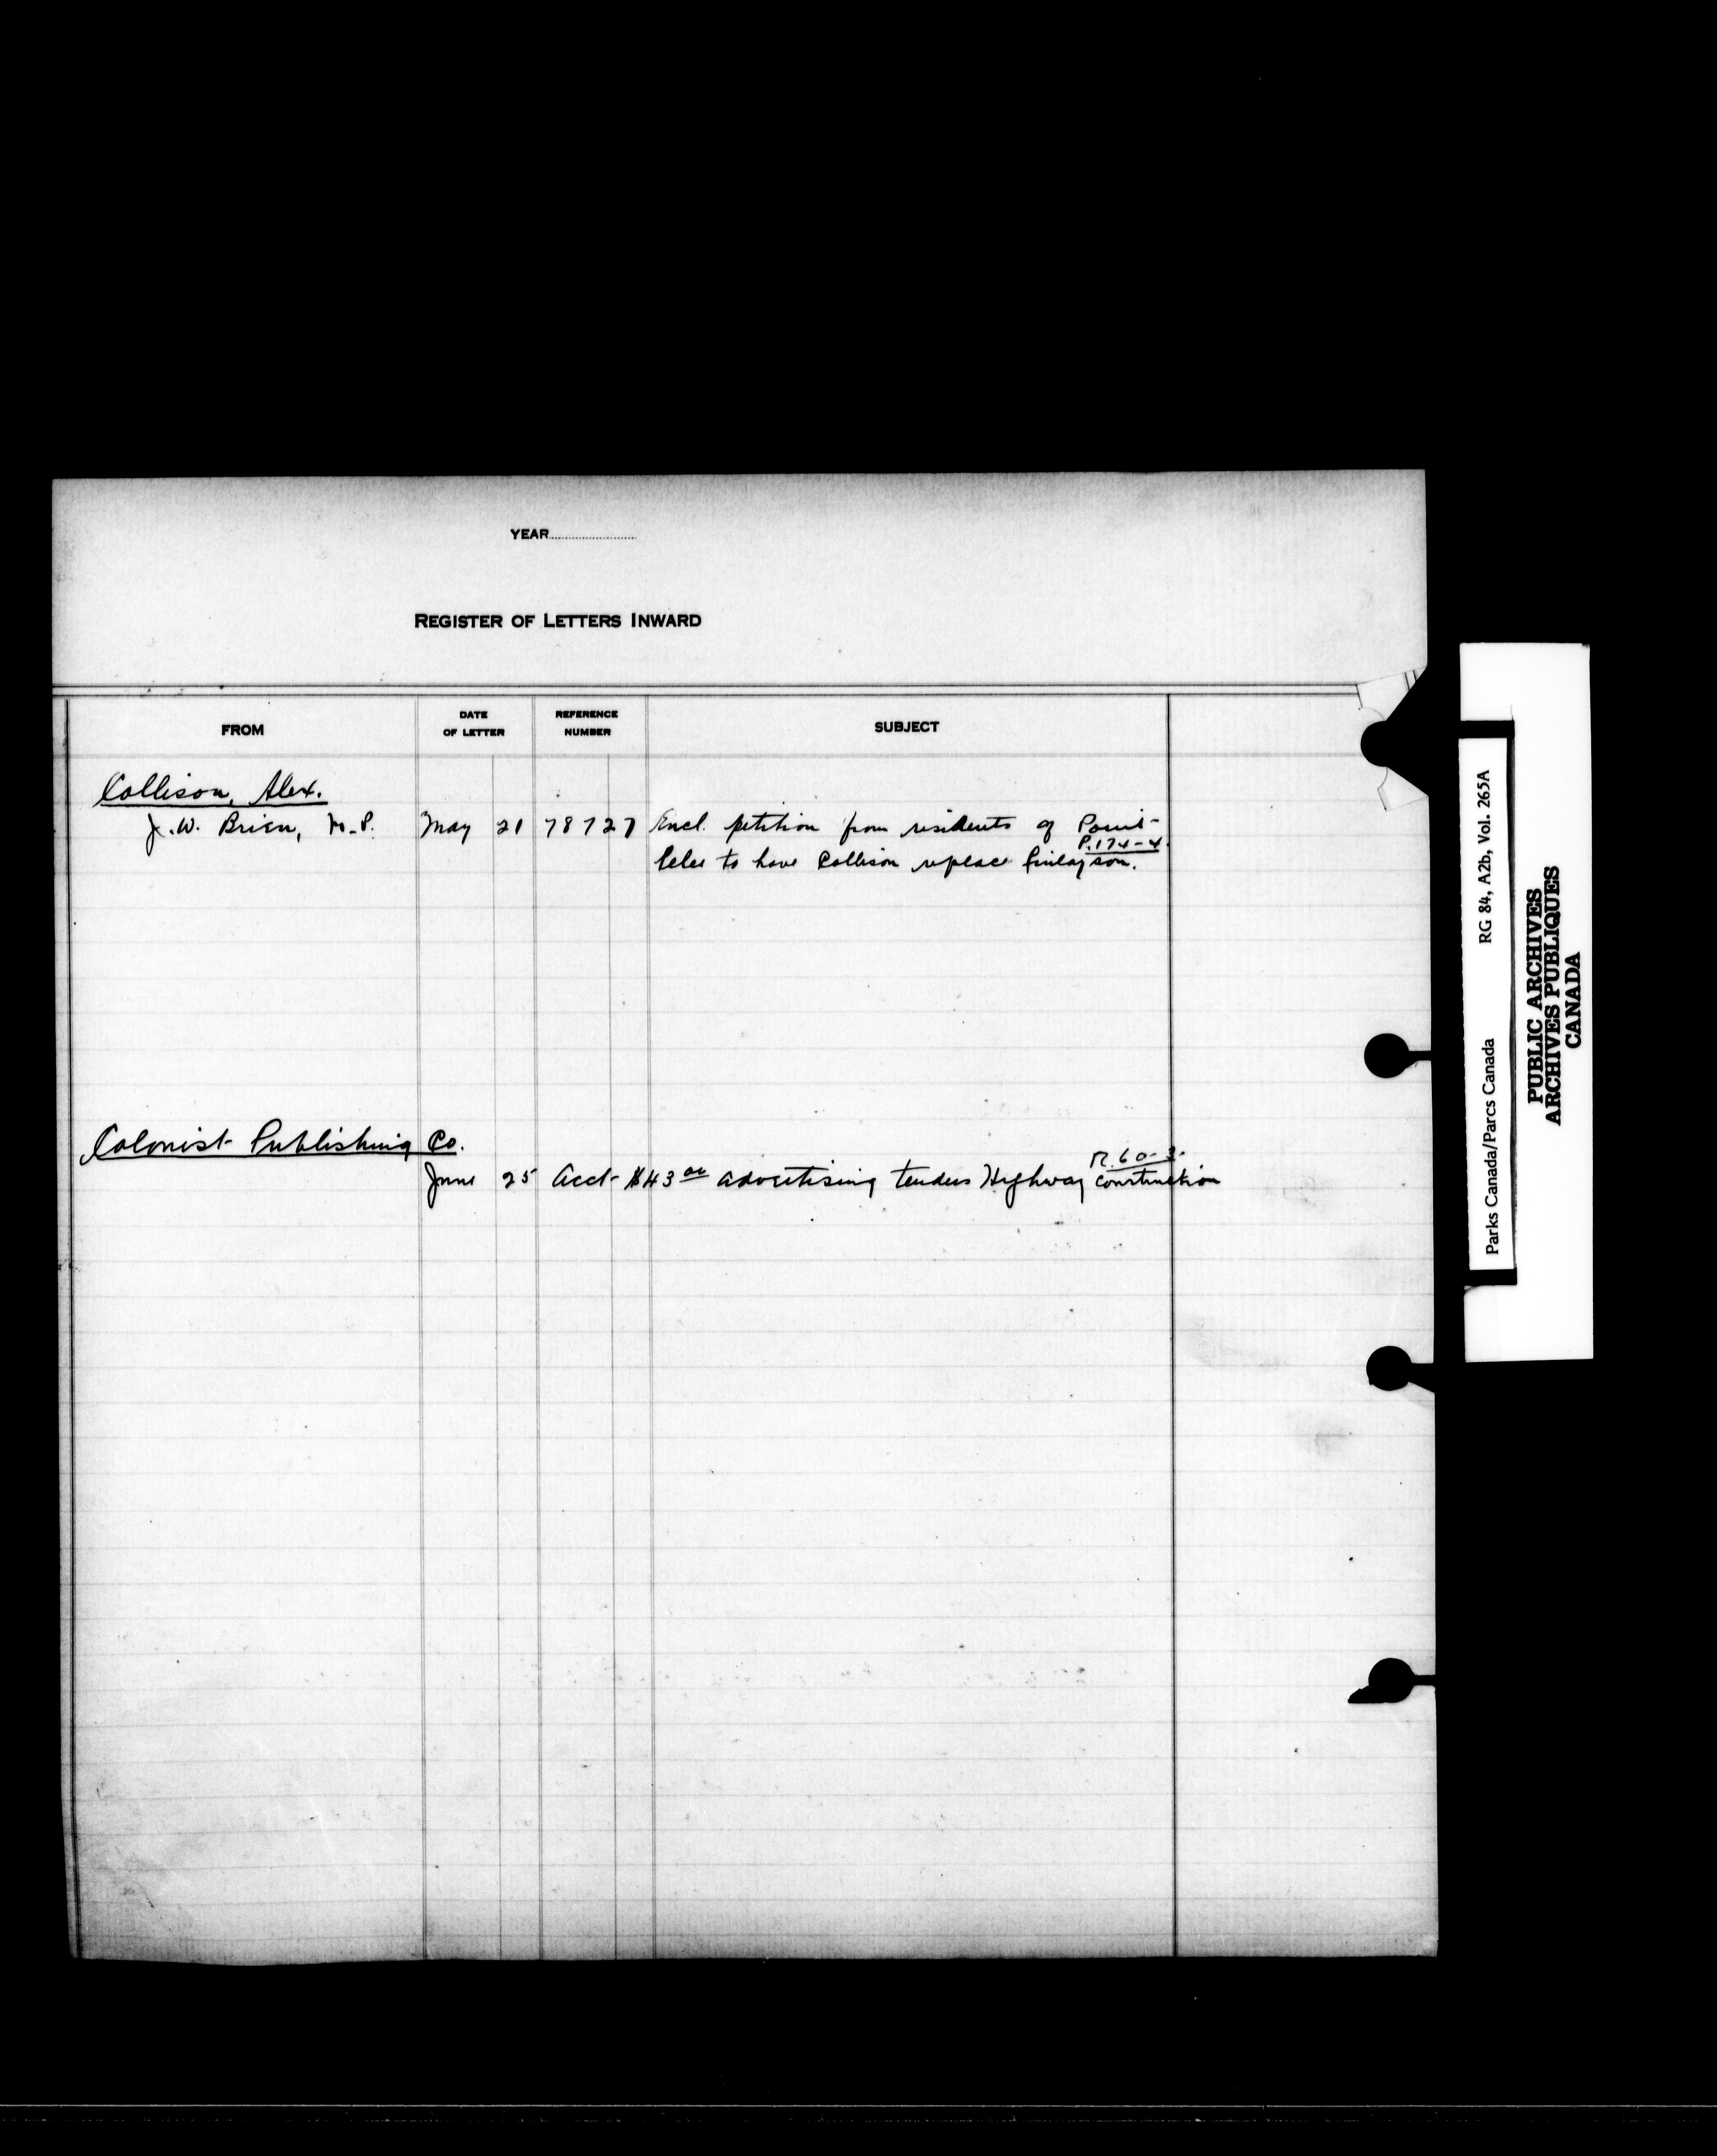 YEAR......................
REGISTER OF LETTERS INWARD
FROM
DATE
OF LETTER
REFERENCE
NUMBER
SUBJECT
Collison, Alex.
J. W. Brien, M.P. May 21 78727 Encl. petition from residents of Point
P.174-4
Pelee to have Collison replace Finlayson.
Colonist Publishing Co.
R.60-3
June 25 Acct $43 00 advertising tenders Highway Construction
Parks Canada/Parcs Canada RG 84, A2b, Vol. 265A
PUBLIC ARCHIVES
ARCHIVES PUBLIQUES
CANADA